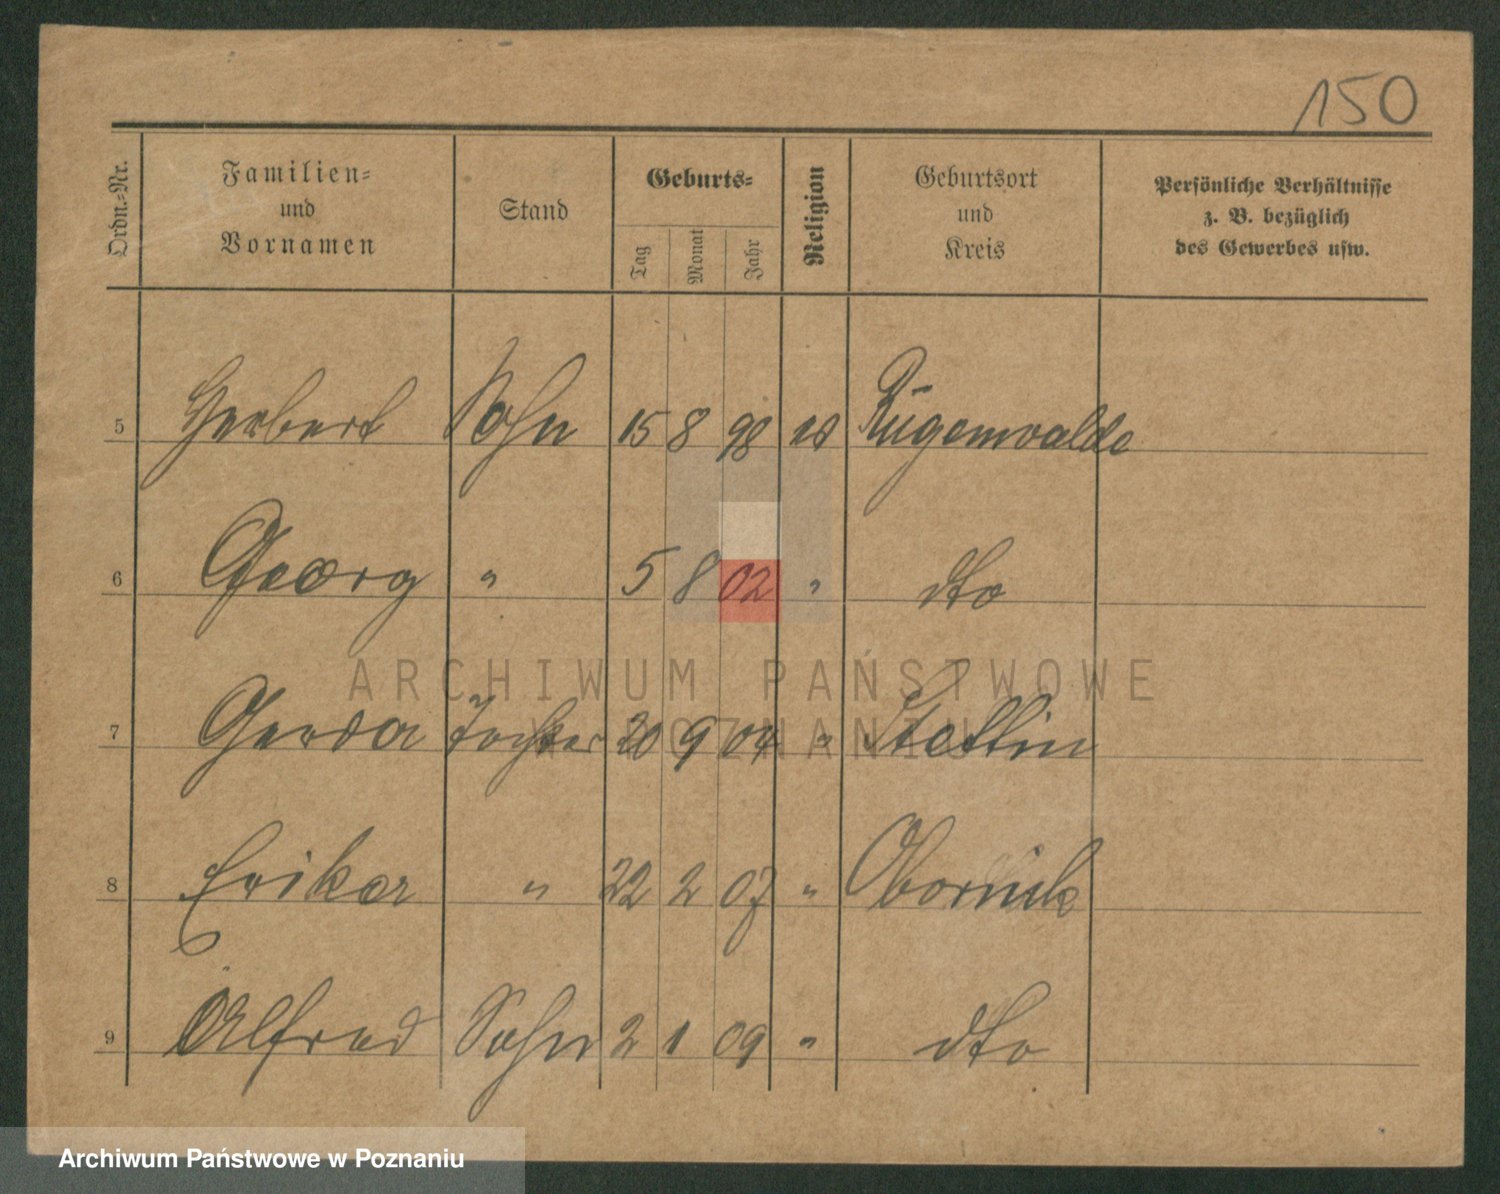 150
Ordn.-Nr.
Familien-
und
Vornamen
Stand
Geburts-
Tag
Monat
Jahr
Religion
Geburtsort
und
Kreis
Persönliche Verhältnisse
z. B. bezüglich
des Gewerbes usw.
5 Herbert Sohn 15 8 98 Rügenwalde
6 Georg " 5 8 02 " dto
7 Gerda Tochter 20 9 04 " Stettin
8 Erika " 22 2 07 " Obornik
9 Alfred Sohn 2 1 09 " dto
ARCHIWUM PAŃSTWOWE
W POZNANIU
Archiwum Państwowe w Poznaniu